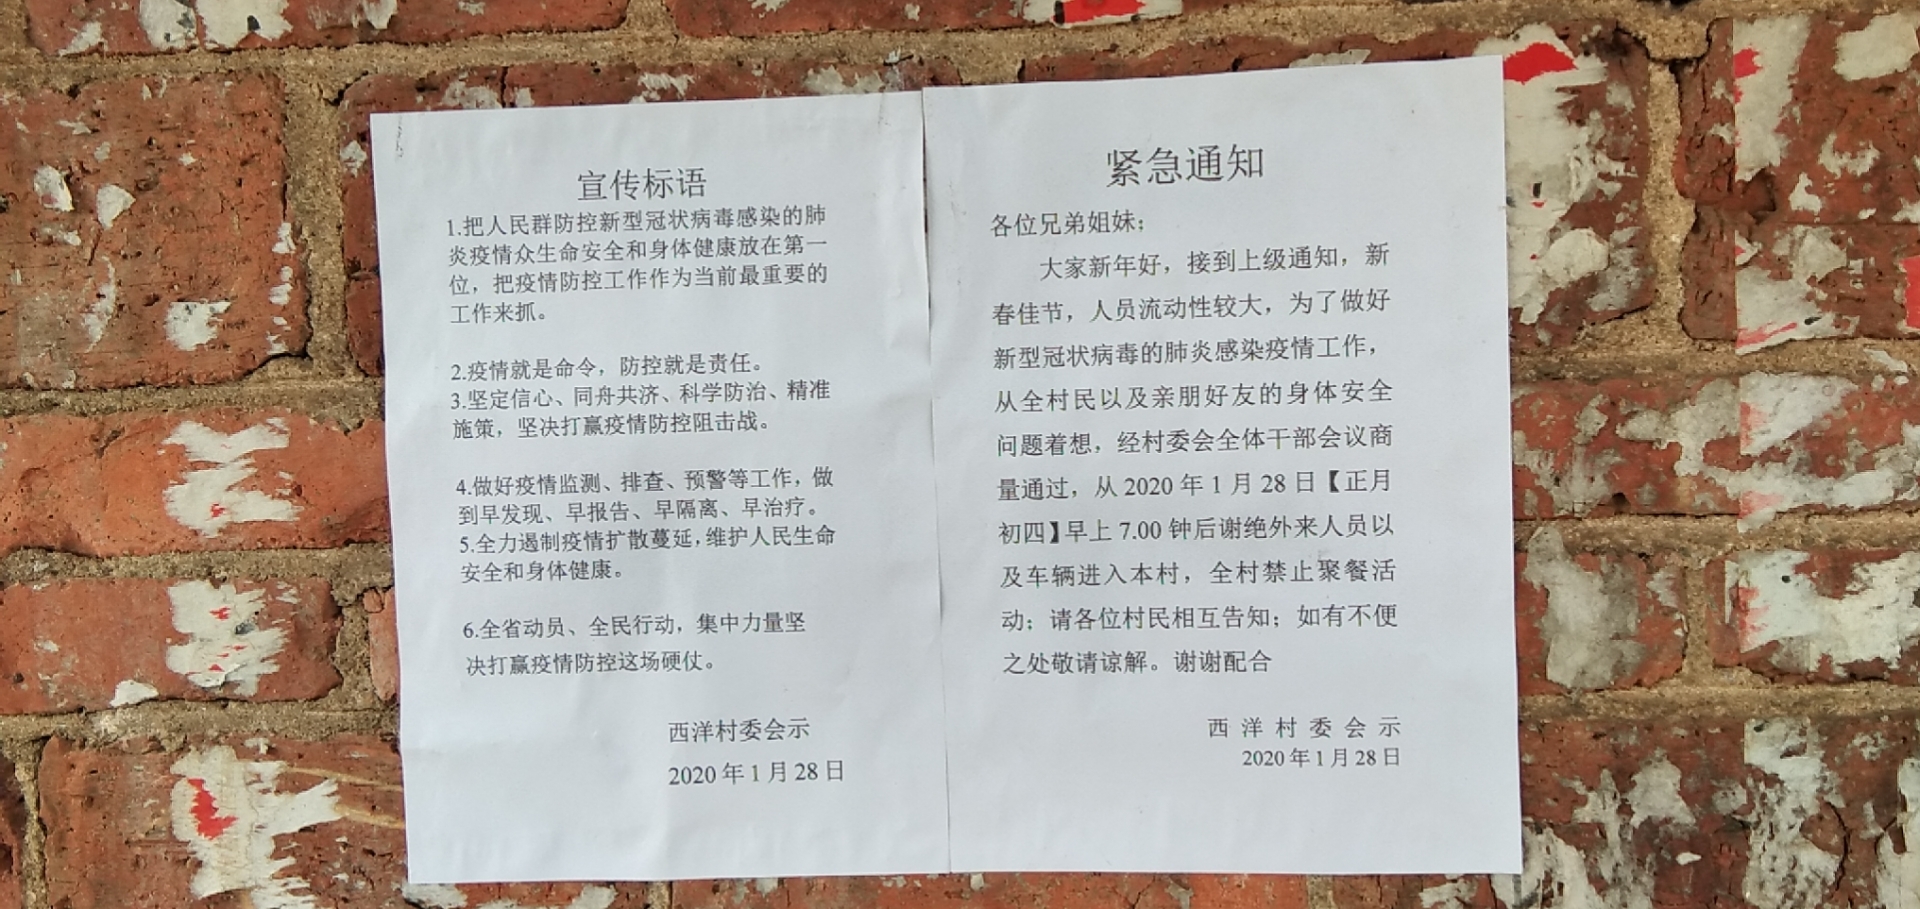 宣传标语
1.把人民群防控新型冠状病毒感染的肺
炎疫情众生命安全和身体健康放在第一
位，把疫情防控工作作为当前最重要的
工作来抓。
2.疫情就是命令，防控就是责任。
3.坚定信心、同舟共济、科学防治、精准
施策，坚决打赢疫情防控阻击战。
4.做好疫情监测、排查、预警等工作，做
到早发现、早报告、早隔离、早治疗。
5.全力遏制疫情扩散蔓延,维护人民生命
安全和身体健康。
6.全省动员、全民行动，集中力量坚
决打赢疫情防控这场硬仗。
西洋村委会示
2020年1月28日
紧急通知
各位兄弟姐妹；
大家新年好，接到上级通知，新
春佳节，人员流动性较大，为了做好
新型冠状病毒的肺炎感染疫情工作，
从全村民以及亲朋好友的身体安全
问题着想，经村委会全体干部会议商
量通过，从2020年1月28日【正月
初四】早上7.00钟后谢绝外来人员以
及车辆进入本村，全村禁止聚餐活
动；请各位村民相互告知；如有不便
之处敬请谅解。谢谢配合
西洋村委会示
2020年1月28日